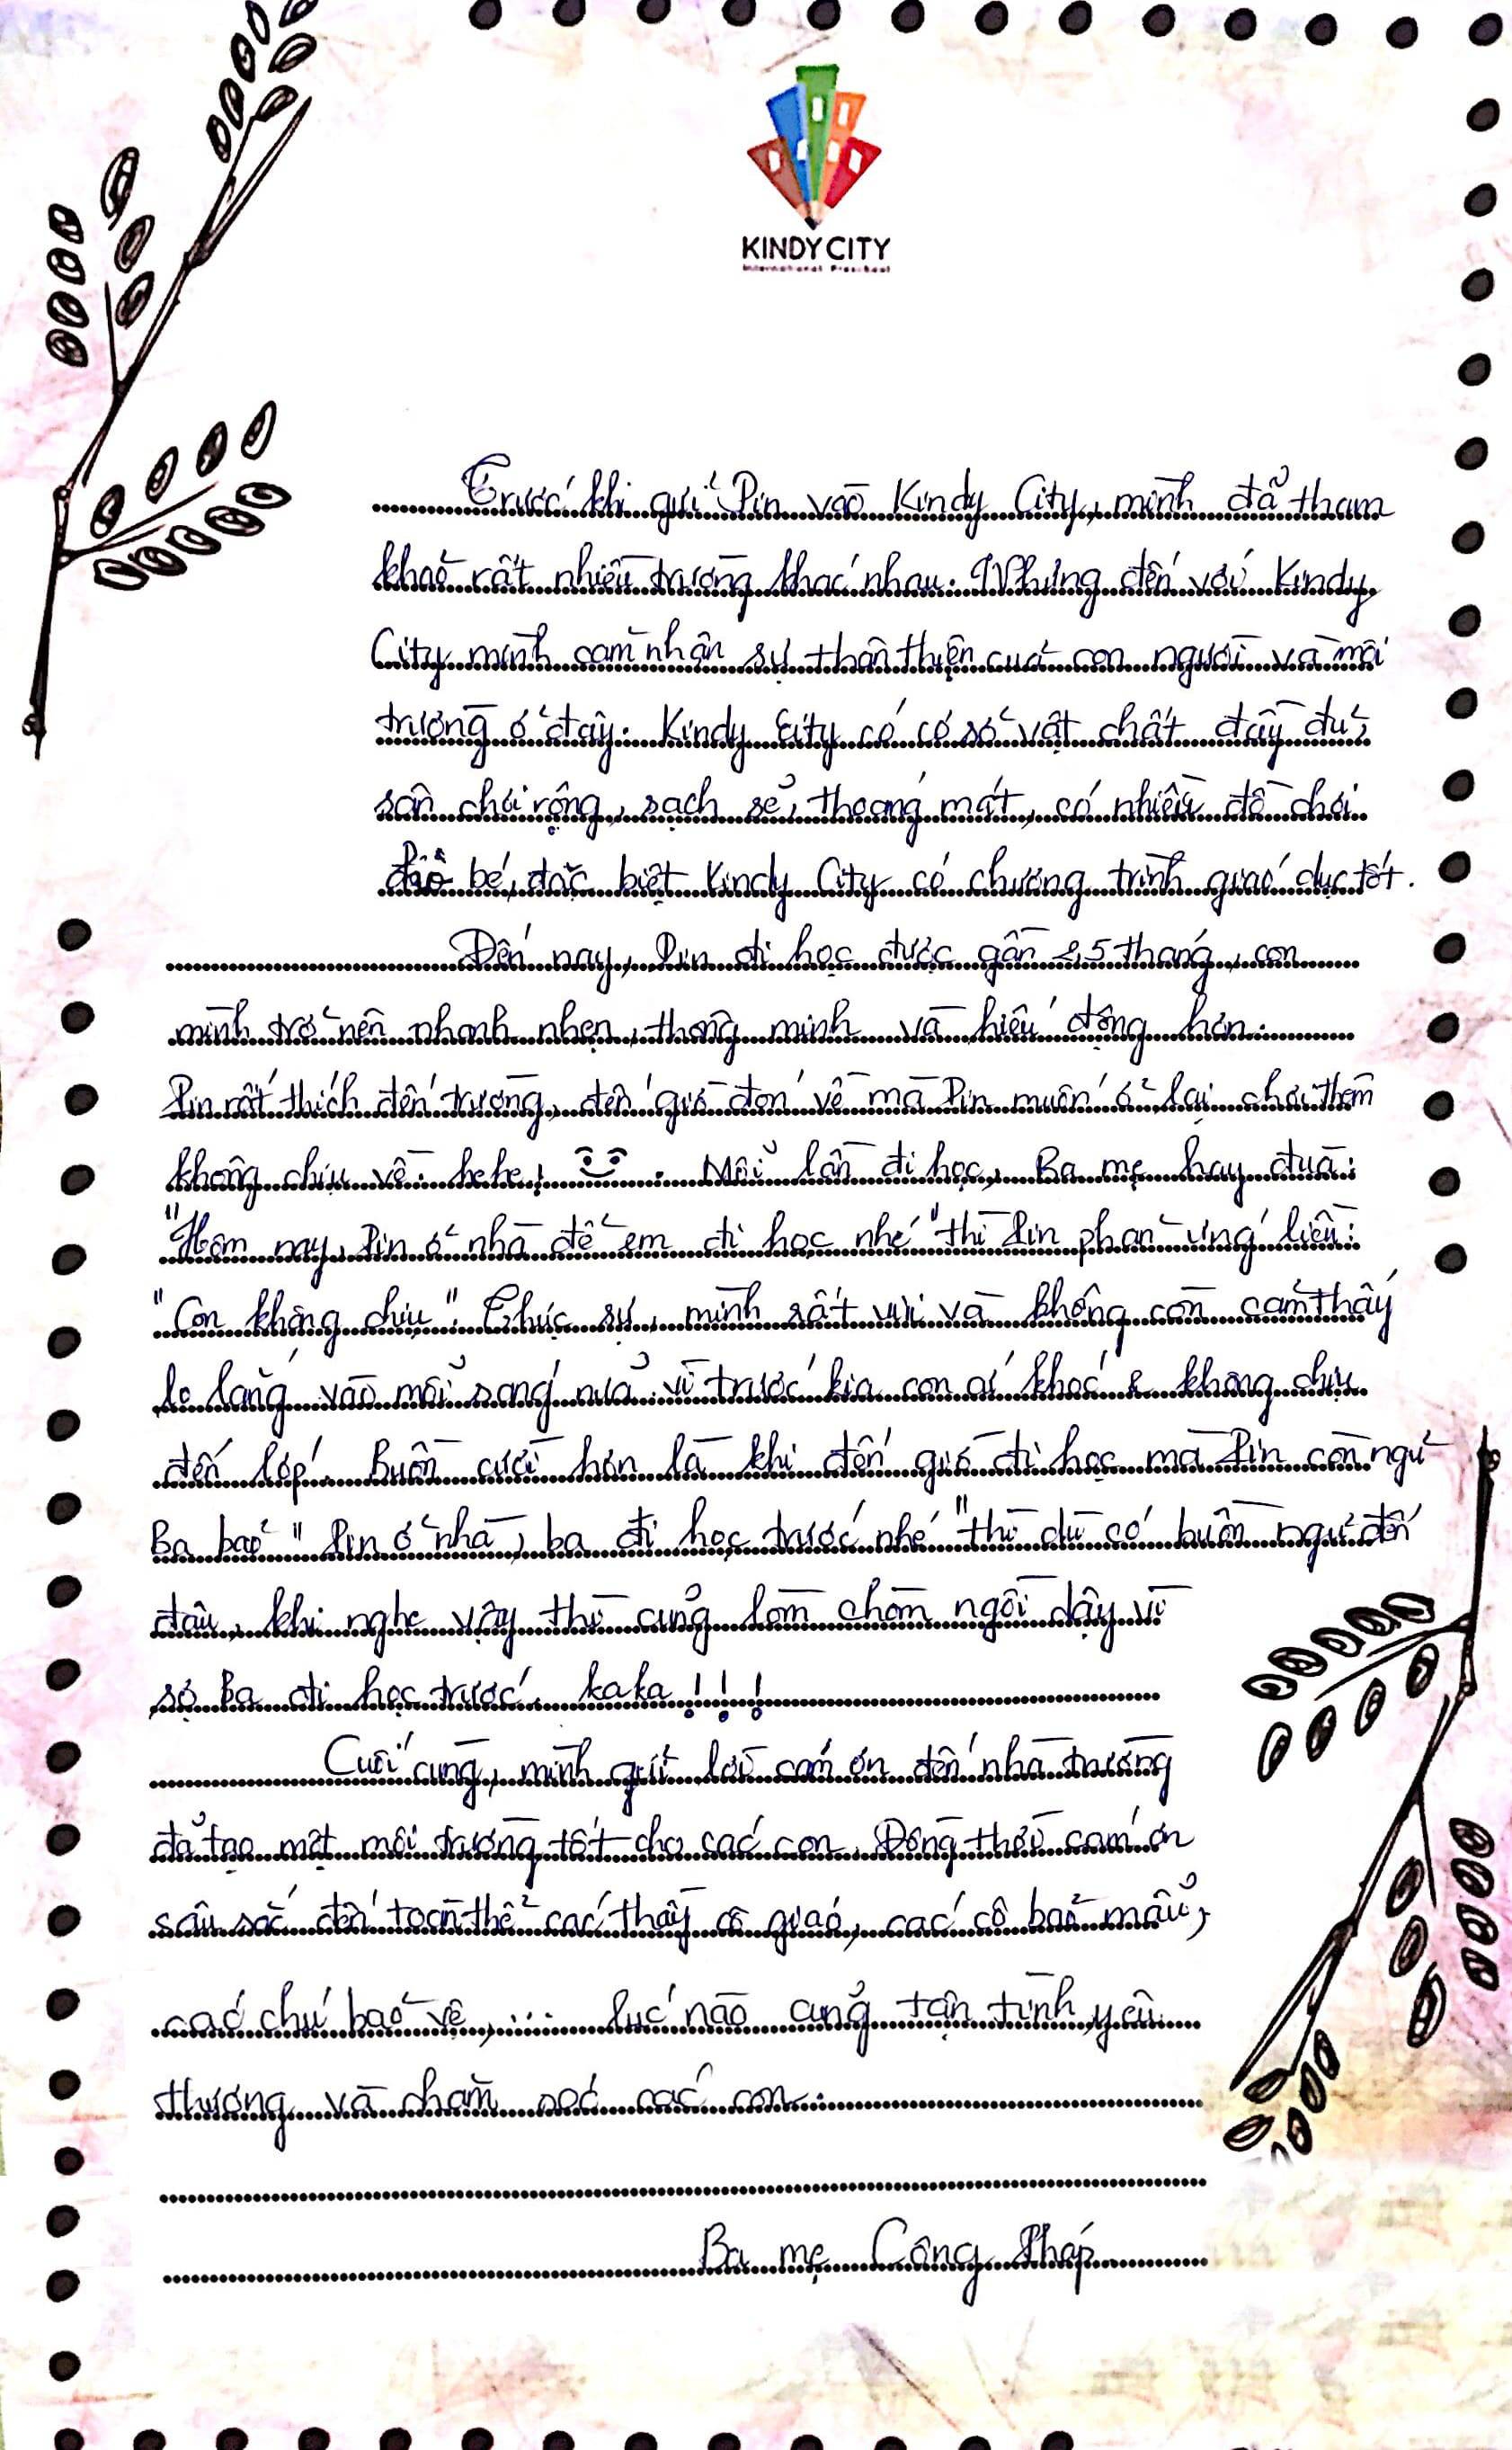 KINDY CITY
International Preschool
Trước khi gửi Pin vào Kindy City, mình đã tham
khảo rất nhiều trường khác nhau. Nhưng đến với Kindy
City mình cảm nhận sự thân thiện của con người và môi
trường ở đây. Kindy City có cơ sở vật chất đầy đủ,
sân chơi rộng, sạch sẽ, thoáng mát, có nhiều đồ chơi
bé, đặc biệt Kindy City có chương trình giáo dục tốt.
Đến nay, Pin đi học được gần 2,5 tháng, con
mình trở nên nhanh nhẹn, thông minh và hiếu động hơn.
Pin rất thích đến trường, đến giờ đón về mà Pin muốn ở lại chơi thêm
không chịu về. hehe! . Mỗi lần đi học, Ba mẹ hay đùa:
"Hôm nay, Pin ở nhà để em đi học nhé" thì Pin phản ứng liền:
"Con không chịu". Thực sự, mình rất vui và không còn cảm thấy
lo lắng vào mỗi sáng nữa vì trước kia con ai khóc & không chịu
đến lớp. Buồn cười hơn là khi đến giờ đi học mà Pin còn ngủ
Ba bảo "Pin ở nhà, ba đi học trước nhé" thì dù có buồn ngủ đến
đâu, khi nghe vậy thì cũng lồm chồm ngồi dậy vì
sợ Ba đi học trước. kaka!!!
Cuối cùng, mình gửi lời cám ơn đến nhà trường
đã tạo một môi trường tốt cho các con. Đồng thời cám ơn
sâu sắc đến toàn thể các thầy cô giáo, các cô bảo mẫu,
các chú bảo vệ,... lúc nào cũng tận tình, yêu
thương và chăm sóc các con.
Ba mẹ Công Pháp